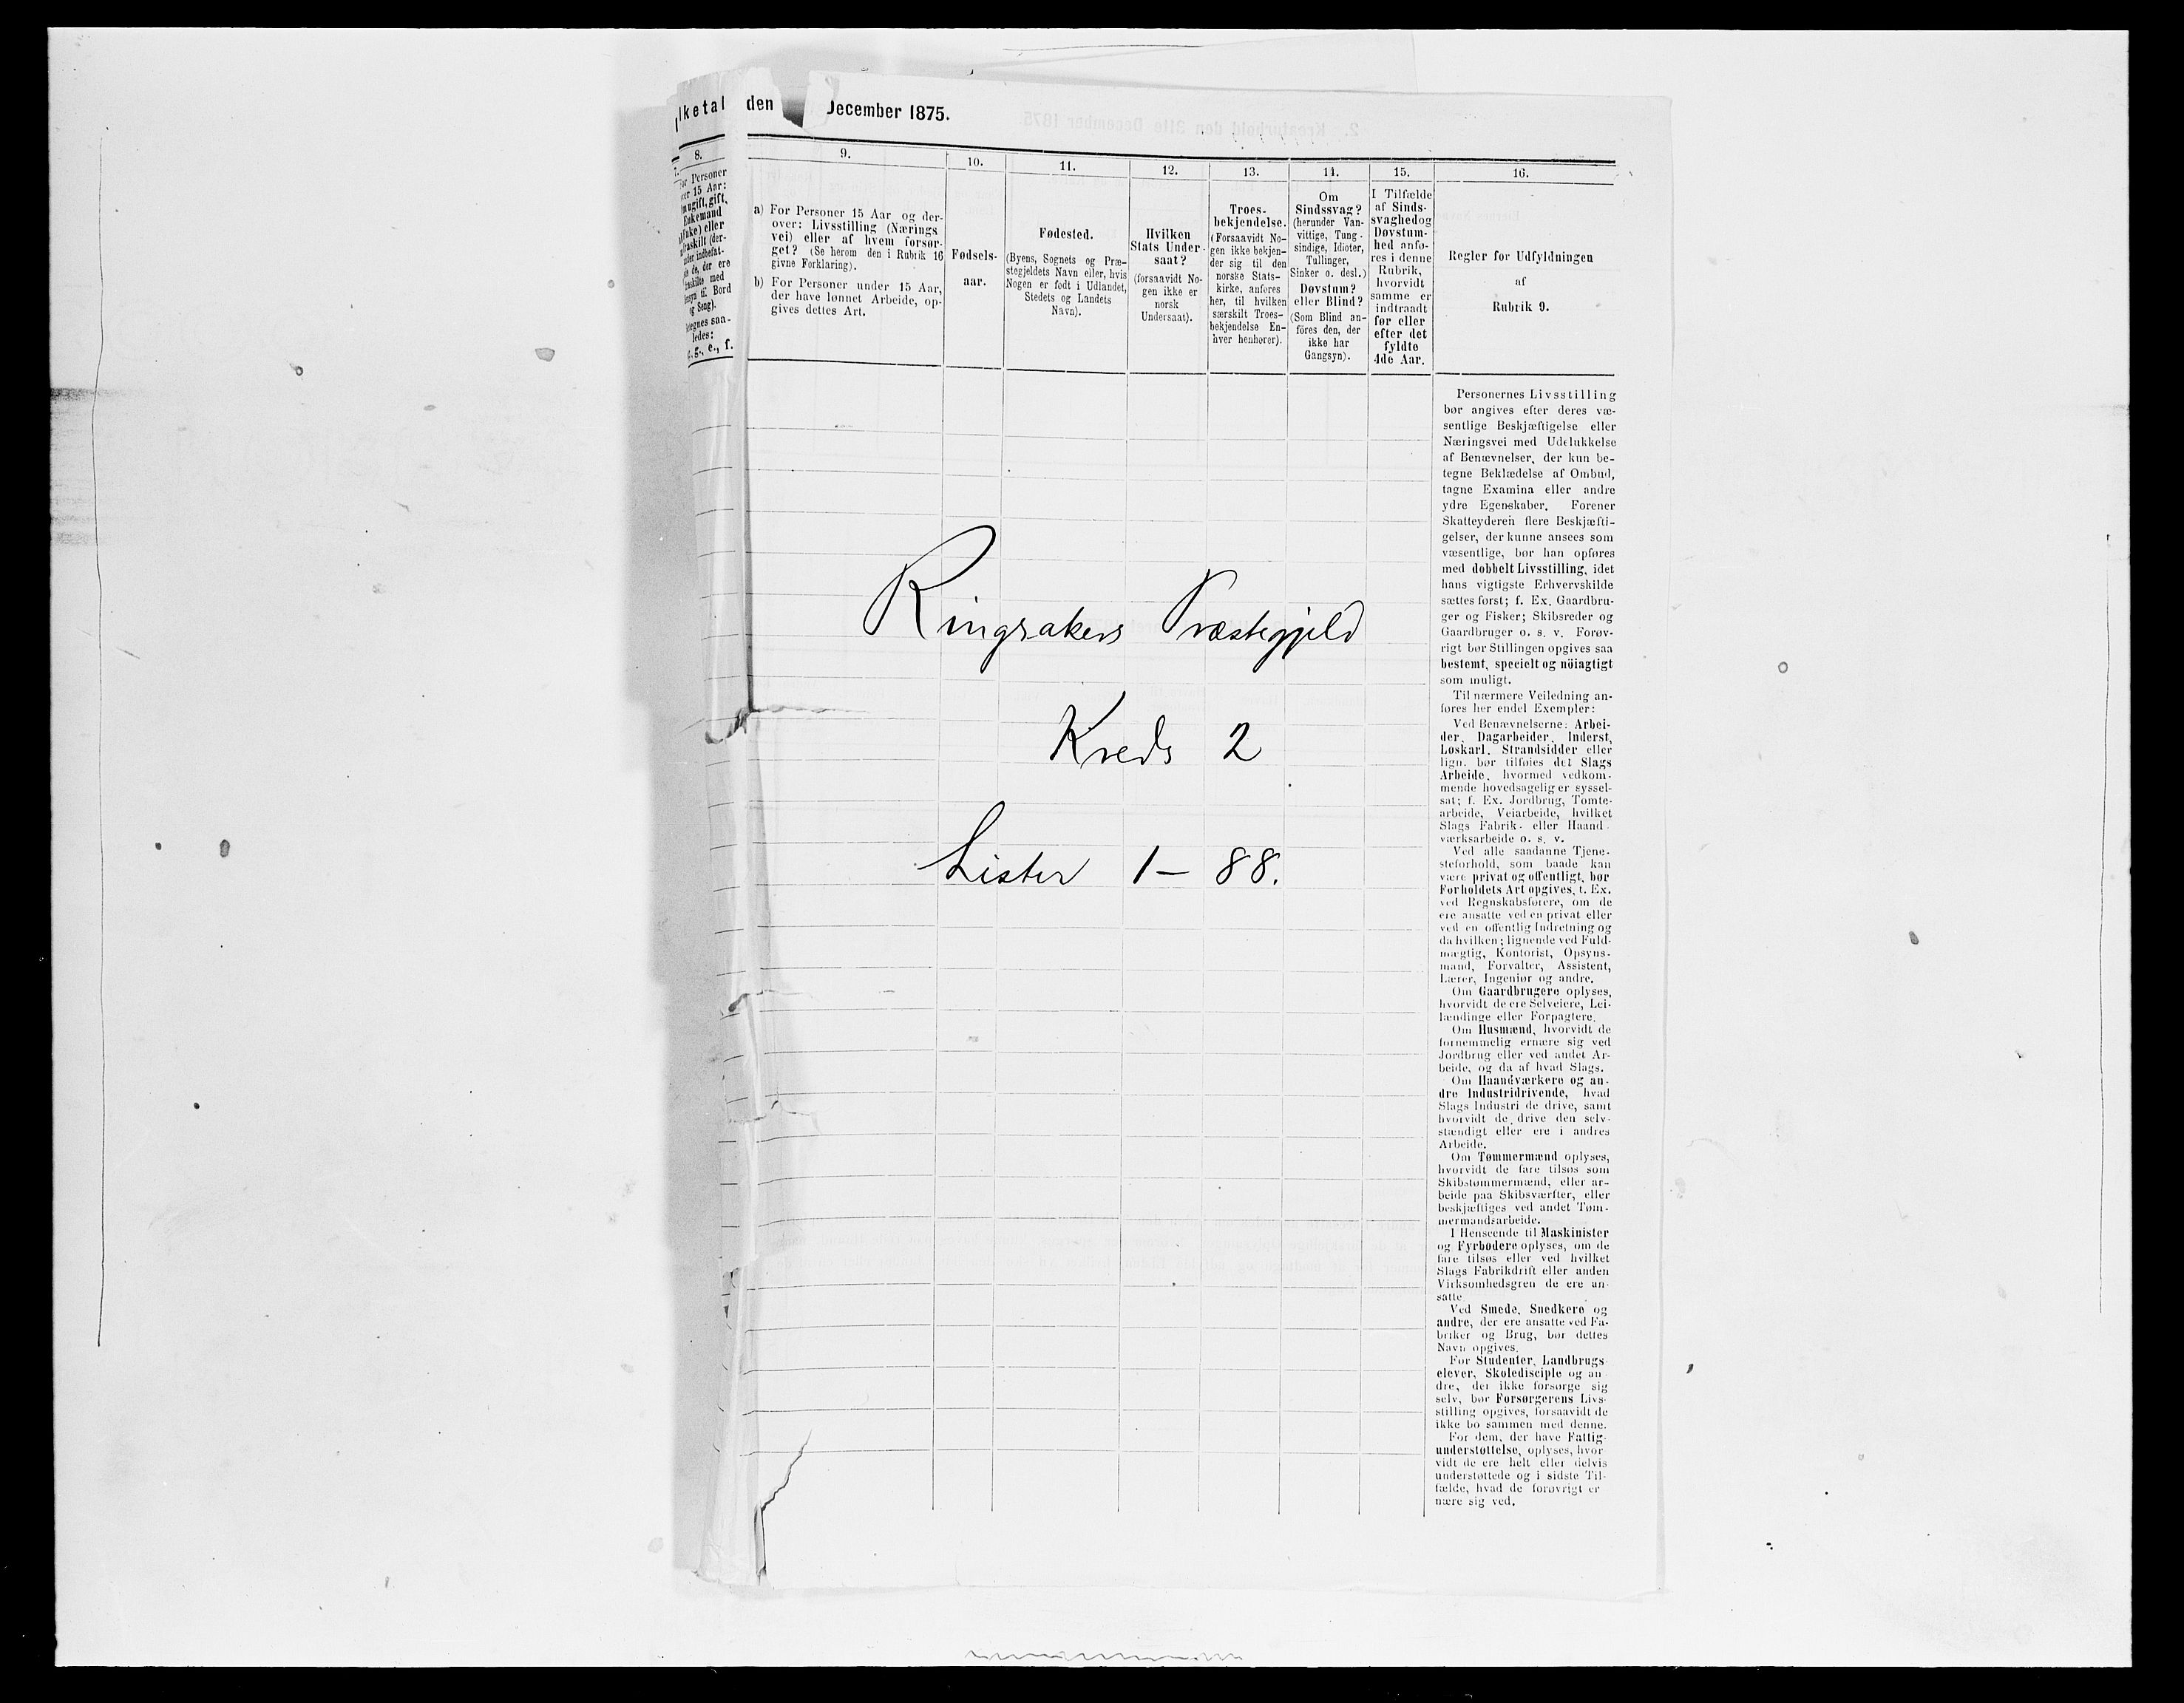 lketal den December 1875.
7. 8. 9. 10. 11. 12. 13. 14. 15. 16.
For Personer
over 15 Aar:
ugift, gift,
Enkemand
eller
fraskilt (der-
under indbefat-
de, der ere
fraskilte med
Hensyn til Bord
og Seng).
Betegnes saa-
ledes:
g., e., f.
a) For Personer 15 Aar og der-
over: Livsstilling (Nærings
vei) eller af hvem forsør-
get? (Se herom den i Rubrik 16
givne Forklaring).
b) For Personer under 15 Aar,
der have lønnet Arbeide, op-
gives dettes Art.
Fødsels-
aar.
Fødested.
(Byens, Sognets og Præ-
stegjeldets Navn eller, hvis
Nogen er født i Udlandet,
Stedets og Landets
Navn).
Hvilken
Stats Under-
saat?
(forsaavidt No-
gen ikke er
norsk
Undersaat).
Troes-
bekjendelse.
(Forsaavidt No-
gen ikke bekjen-
der sig til den
norske Stats-
kirke, anføres
her, til hvilken
særskilt Troes-
bekjendelse En-
hver henhører).
Om
Sindssvag?
(herunder Van-
vittige, Tung-
sindige, Idioter,
Tullinger,
Sinker o. desl.)
Døvstum?
eller Blind?
(Som Blind an-
föres den, der
ikke har
Gangsyn).
I Tilfælde
af Sinds-
svaghedog
Døvstum-
hed anfø-
res i denne
Rubrik,
hvorvidt
samme er
indtraadt
før eller
efter det
fyldte
4de Aar.
Regler for Udfyldningen
af
Rubrik 9.
Ringsakers Præstegjeld
Kreds 2
Lister 1-88.
Personernes Livsstilling
bør angives efter deres væ-
sentlige Beskjæftigelse eller
Næringsvei med Udelukkelse
af Benævnelser, der kun be-
tegne Beklædelse af Ombud,
tagne Examina eller andre
ydre Egenskaber. Forener
Skatteyderen flere Beskjæfti-
gelser, der kunne ansees som
væsentlige, bør han opføres
med dobbelt Livsstilling, idet
hans vigtigste Erhvervskilde
sættes først; f. Ex. Gaardbru-
ger og Fisker; Skibsreder og
Gaardbruger o. s. v. Forøv-
rigt bør Stillingen opgives saa
bestemt, specielt og nöiagtigt
som muligt.
Til nærmere Veiledning an-
føres her endel Exempler:
Ved Benævnelserne: Arbei-
der, Dagarbeider, Inderst,
Løskarl, Strandsidder eller
lign. bør tilføies det Slags
Arbeide, hvormed vedkom-
mende hovedsagelig er syssel-
sat; f. Ex. Jordbrug, Tomte-
arbeide, Veiarbeide, hvilket
Slags Fabrik- eller Haand-
værksarbeide o. s. v.
Ved alle saadanne Tjene-
steforhold, som baade kan
være privat og offentligt, bør
Forholdets Art opgives, f. Ex.
ved Regnskabsførere, om de
ere ansatte ved en privat eller
ved en offentlig Indretning og
da hvilken; lignende ved Fuld-
mægtig, Kontorist, Opsyns-
mand, Forvalter, Assistent,
Lærer, Ingeniør og andre.
Om Gaardbrugere oplyses,
hvorvidt de ere Selveiere, Lei-
lændinge eller Forpagtere.
Om Husmænd, hvorvidt de
fornemmelig ernære sig ved
Jordbrug eller ved andet Ar-
beide, og da af hvad Slags.
Om Haandværkere og an-
dre Industridrivende, hvad
Slags Industri de drive, samt
hvorvidt de drive den selv-
stændigt eller ere i andres
Arbeide.
Om Tømmermænd oplyses,
hvorvidt de fare tilsøs som
Skibstømmermænd, eller ar-
beide paa Skibsværfter, eller
beskjæftiges ved andet Tøm-
mermandsarbeide.
I Henseende til Maskinister
og Fyrbødere oplyses, om de
fare tilsøs eller ved hvilket
Slags Fabrikdrift eller anden
Virksomhedsgren de ere an-
satte
Ved Smede, Snedkere og
andre, der ere ansatte ved Fa-
briker og Brug, bør dettes
Navn opgives.
For Studenter, Landbrugs-
elever, Skoledisciple og an
dre, der ikke forsørge sig
selv, bør Forsørgerens Livs-
stilling opgives, forsaavidt de
ikke bo sammen med denne.
For dem, der have Fattig-
understøttelse, oplyses, hvor
vidt de ere helt eller delvis
understøttede og i sidste Til-
fælde, hvad de forøvrigt er
nære sig ved.